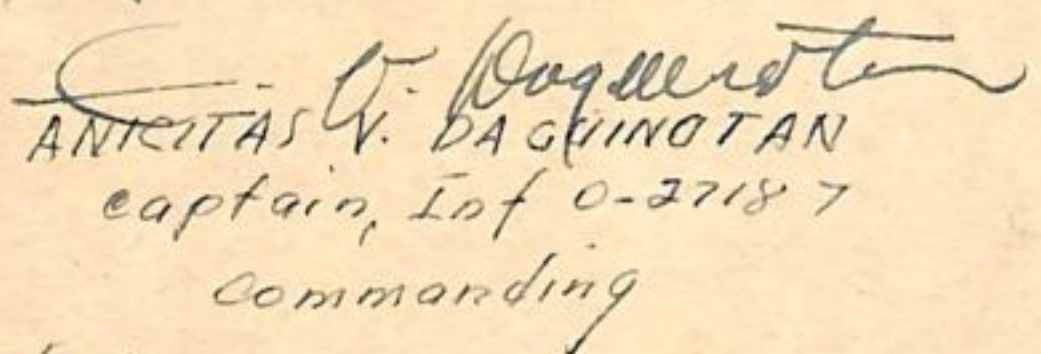 A. V. Daquinotan
ANICITAS V. DAQUINOTAN
captain, Inf O-27187
commanding